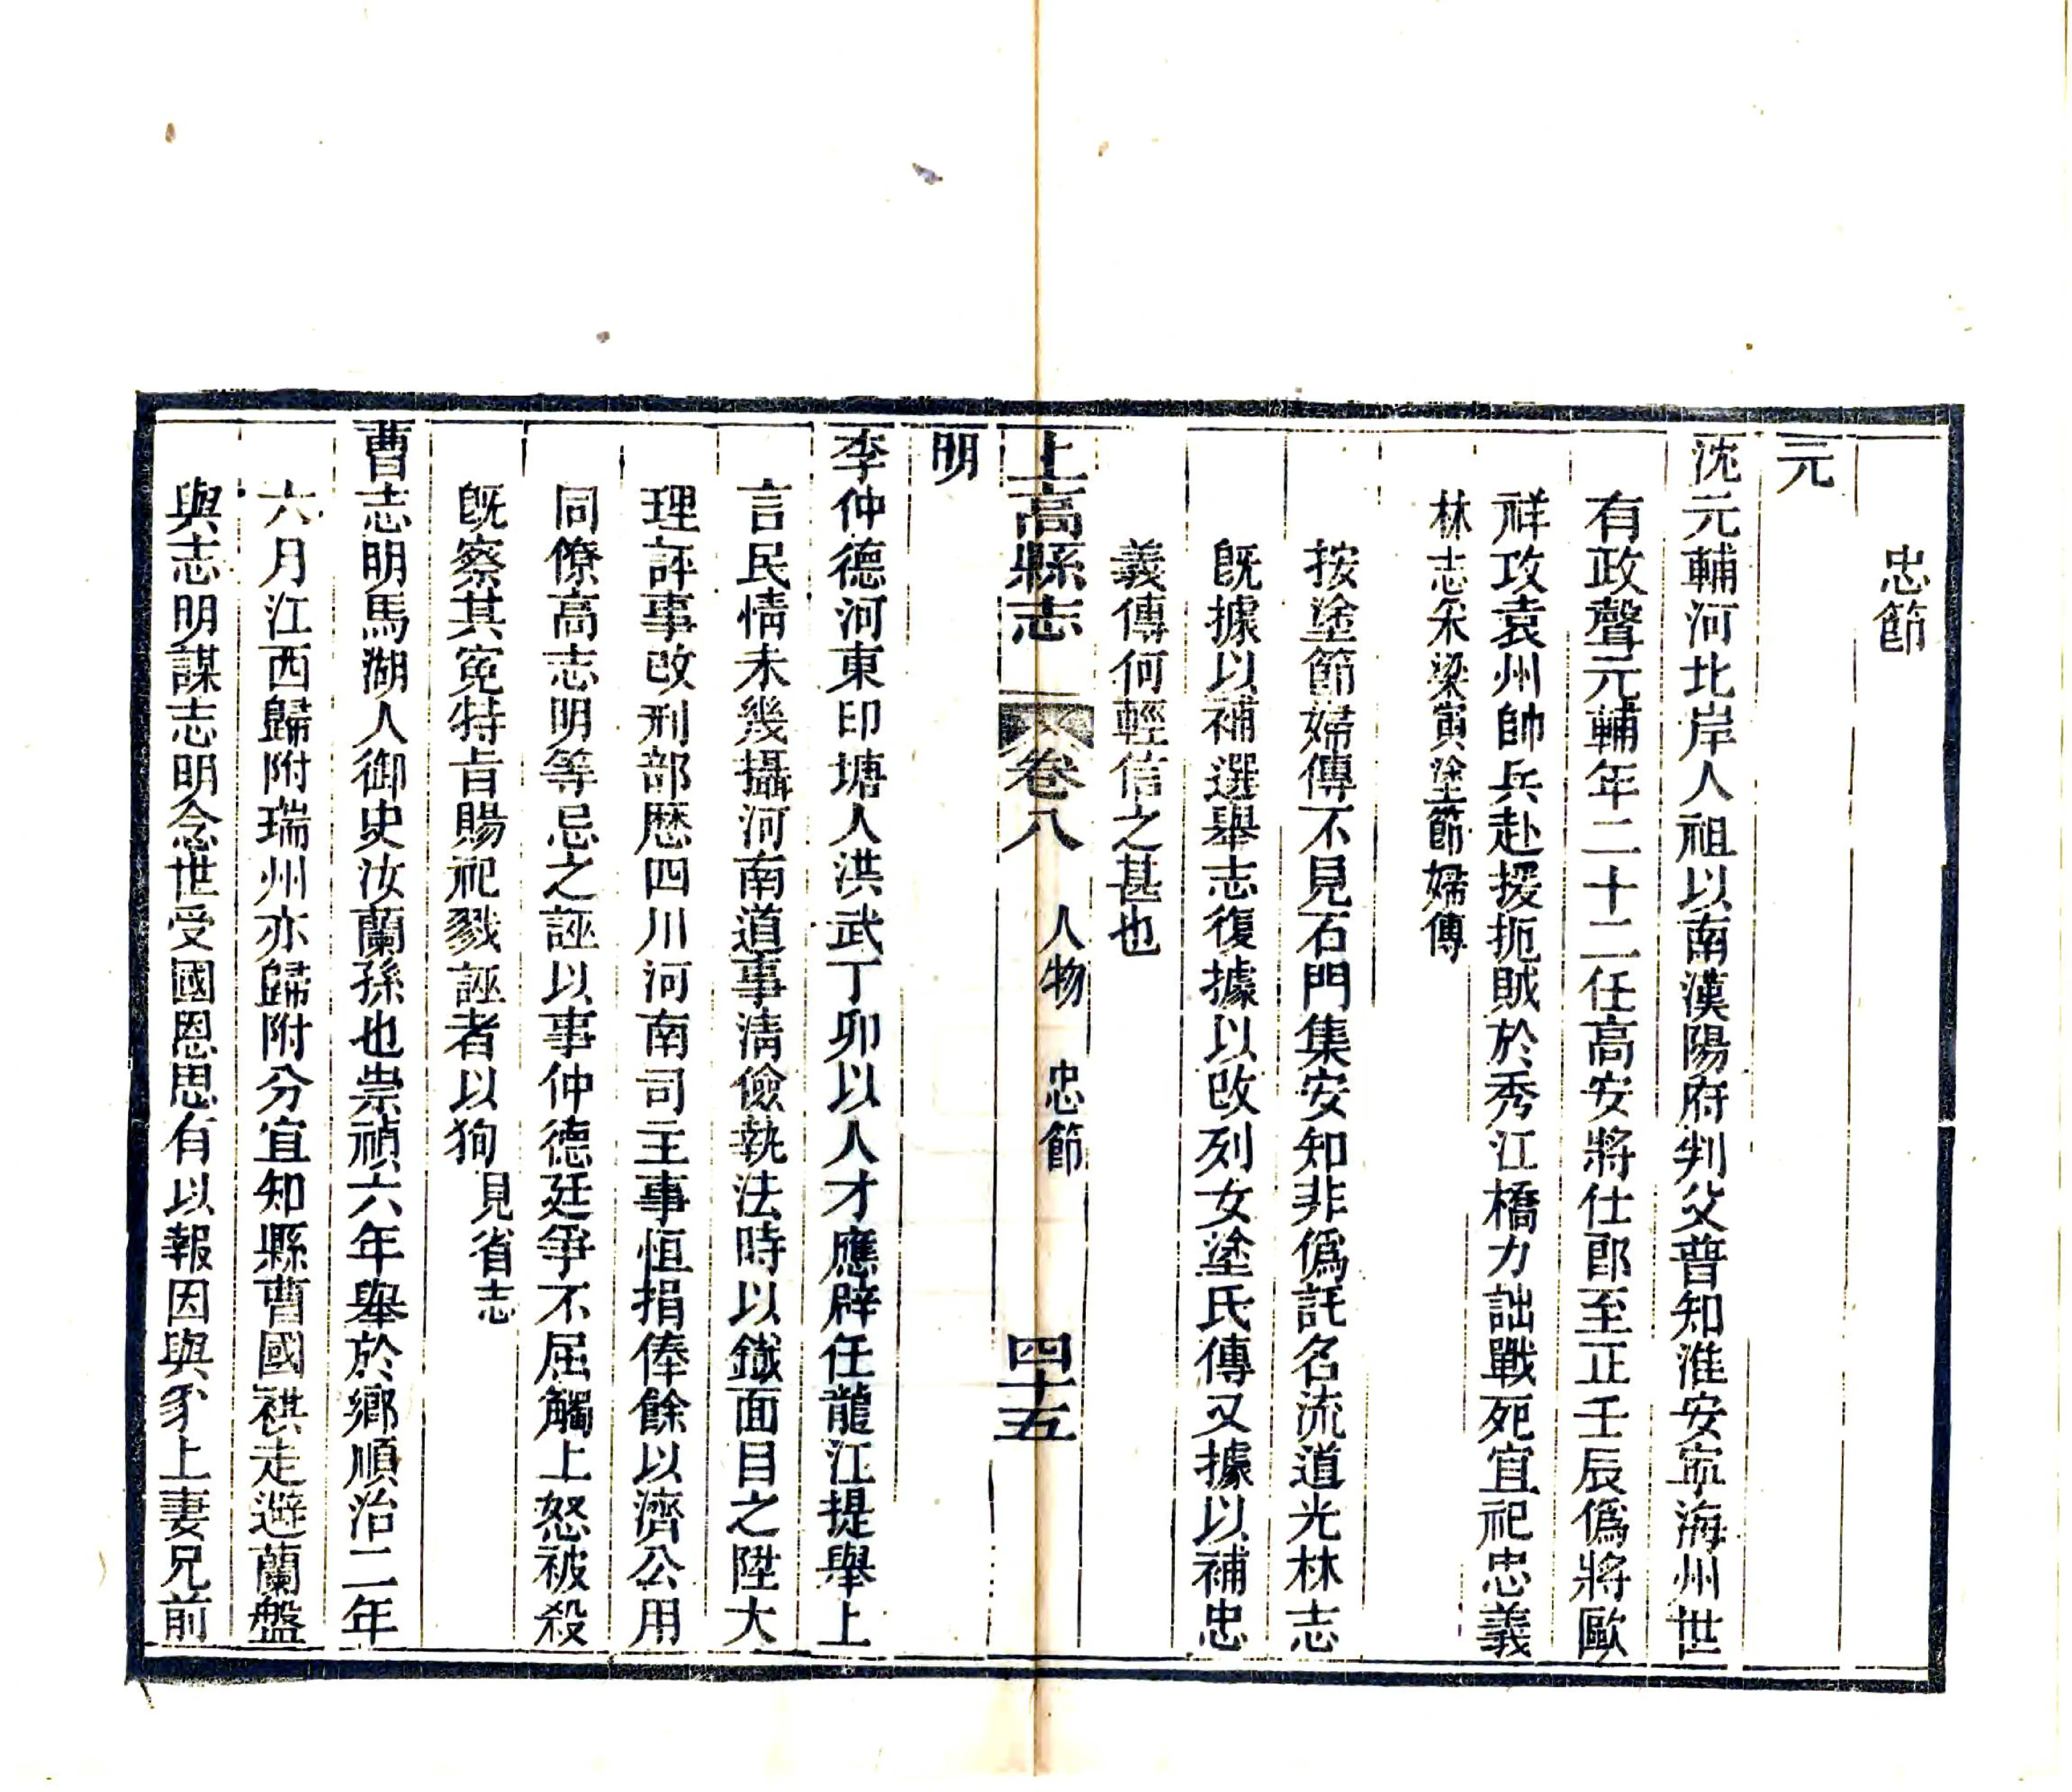 忠節
元
沈元輔河北岸人祖以南漢陽府判父普知淮安寧海州世
有政聲元輔年二十二任高安將仕郎至正壬辰僞將歐
祥攻袁州帥兵赴援扼賊於秀江橋力詘戰死宜祀忠義
林志朱梁寅塗節婦傳
按塗節婦傳不見石門集安知非僞託名流道光林志
旣據以補選舉志復據以改列女塗氏傳又據以補忠
義傳何輕信之甚也
上高縣志 卷八 人物 忠節 四十五
明
李仲德河東印塘人洪武丁卯以人才應辟任龍江提舉上
言民情未幾攝河南道事淸儉執法時以鐵面目之陞大
理評事改刑部歷四川河南司主事恒捐俸餘以濟公用
同僚高志明等忌之誣以事仲德廷爭不屈觸上怒被殺
旣察其寃特旨賜祀戮誣者以狥見省志
曹志明馬湖人御史汝蘭孫也崇禎六年舉於鄉順治二年
六月江西歸附瑞州亦歸附分宜知縣曹國祺走避蘭盤
與志明謀志明念世受國恩思有以報因與豕上妻兄前